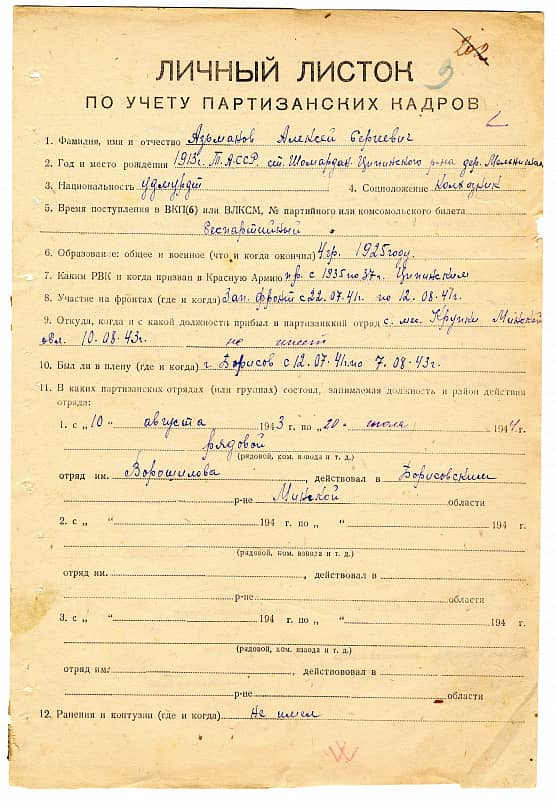 202
9
ЛИЧНЫЙ ЛИСТОК
ПО УЧЕТУ ПАРТИЗАНСКИХ КАДРОВ
1. Фамилия, имя и отчество Азьманов Алексей Сергеевич
2. Год и место рождения 1913 г. Т.АССР. ст. Шомардан. Ципинского р-на дер.
3. Национальность удмурдт 4. Соцположение Колхозник
5. Время поступления в ВКП(б) или ВЛКСМ, № партийного или комсомольского билета
беспартийный
6. Образование: общее и военное (что и когда окончил) 4 гр. 1925 году.
7. Каким РВК и когда призван в Красную Армию с 1935 по 37 г. Ципинским
8. Участие на фронтах (где и когда) Зап. фронт с 22.07.41 по 12.08.41 г.
9. Откуда, когда и с какой должности прибыл в партизанкий отряд с м. Крупки Минской
обл. 10.08.43 г. не имеет
10. Был ли в плену (где и когда) г. Борисов с 12.07.41 по 7.08.43 г.
11. В каких партизанских отрядах (или группах) состоял, занимаемая должность и район действия
отряда:
1. с „ 10 “ августа 1943 г. по „ 20 “ июля 1944 г.
рядовой
(рядовой, ком. взвода и т. д.)
отряд им. Ворошилова, действовал в Борисовским
р-не Минской области
2. с „ “ 194 г. по „ “ 194 г.
(рядовой, ком. взвода и т. д.)
отряд им. , действовал в
р-не области
3. с „ “ 194 г. по „ “ 194 г.
(рядовой, ком. взвода и т. д.)
отряд им. , действововал в
р-не области
12. Ранения и контузии (где и когда) не имел